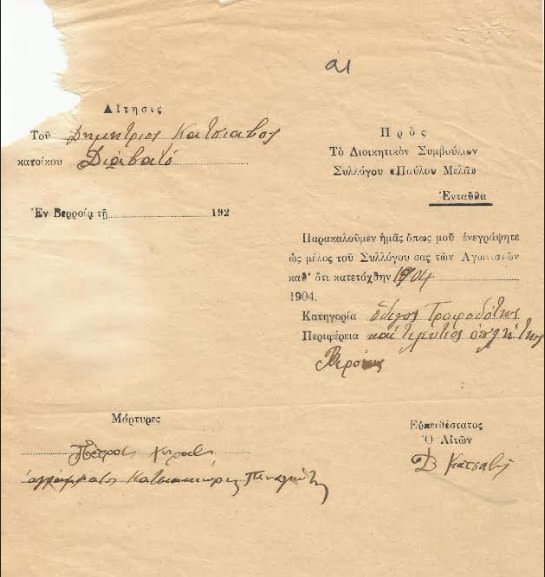 αι
Αἴτησις
Τοῦ Δημητριος Κατσιαβος
κατοίκου Διαβατό
Ἐν Βερροίᾳ τῇ 192
Πρὸς
Τὸ Διοικητικὸν Συμβούλιον
Συλλόγου «Παῦλον Μελᾶν»
Ἐνταῦθα
Παρακαλοῦμεν ἡμᾶς ὅπως μοῦ ἐνεγράψητε
ὡς μέλος τοῦ Συλλόγου σας τῶν Ἀγωνιστῶν
καθ' ὅτι κατετάχθην 1904
1904.
Κατηγορία ὁδιγος Τροφοδότης
Περιφέρεια και οπλήτης
Βεροίας
Μάρτυρες
Πέτρος
Εὐπειθέστατος
Ὁ Αἰτῶν
Δ Κατσαβς